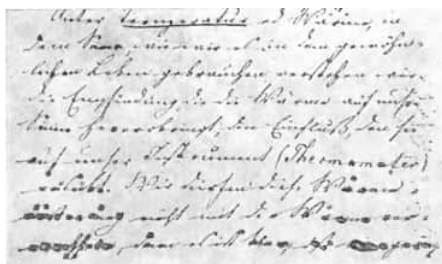 Unter Temperatur od Wärme, in
dem Sinn, wie wir es in dem gewöhn-
lichen Leben gebrauchen verstehen wir
die Empfindung, die die Wärme auf unsre
Sinne hervorbringt, den Einfluß, den sie
auf unser Instrument (Thermometer)
ausübt. Wir dürfen diese Wärme-
nicht mit der Wärme ver-
denn es ist klar,